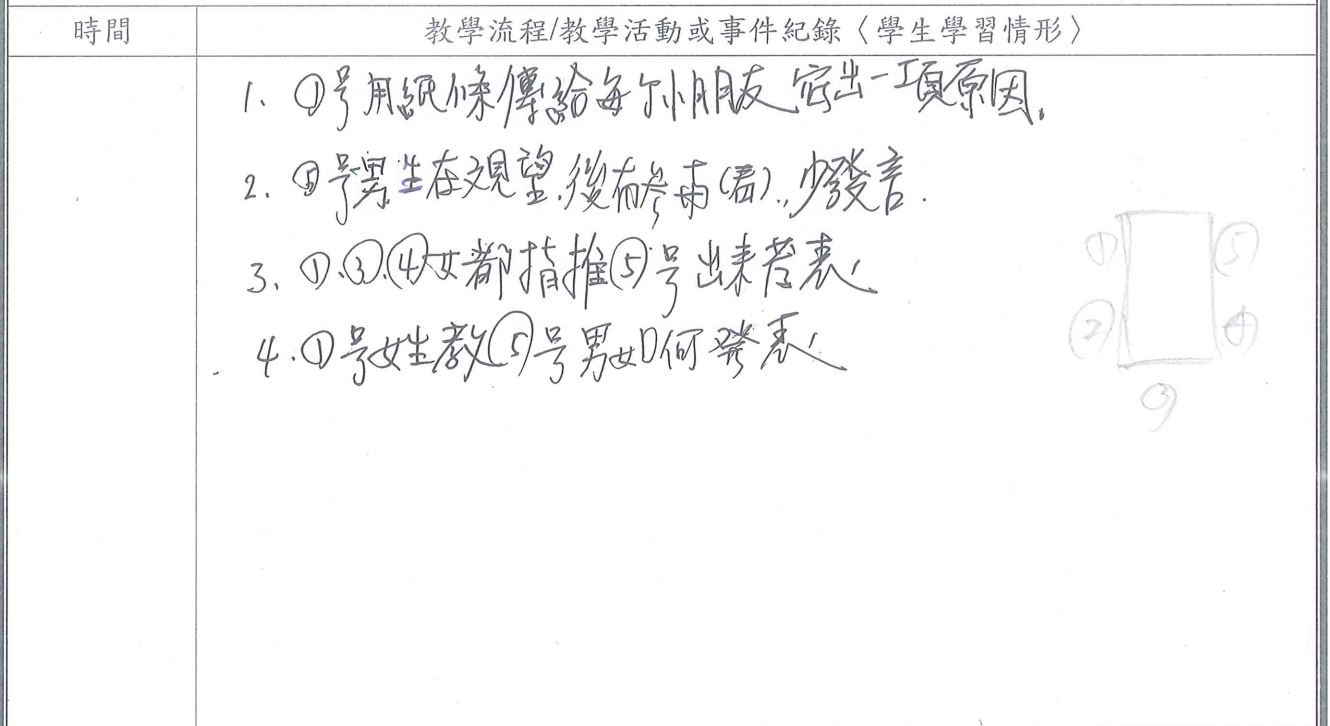 時間
教學流程/教學活動或事件紀錄〈學生學習情形〉
1. ①号用紙條傳給每个小朋友寫出一項原因。
2. ⑤号男生在觀望,後有參与(看).,少發言.
3. ①、③、④女都指推⑤号出來發表
4. ①号女生教⑤号男如何發表
① ⑤
② ④
③